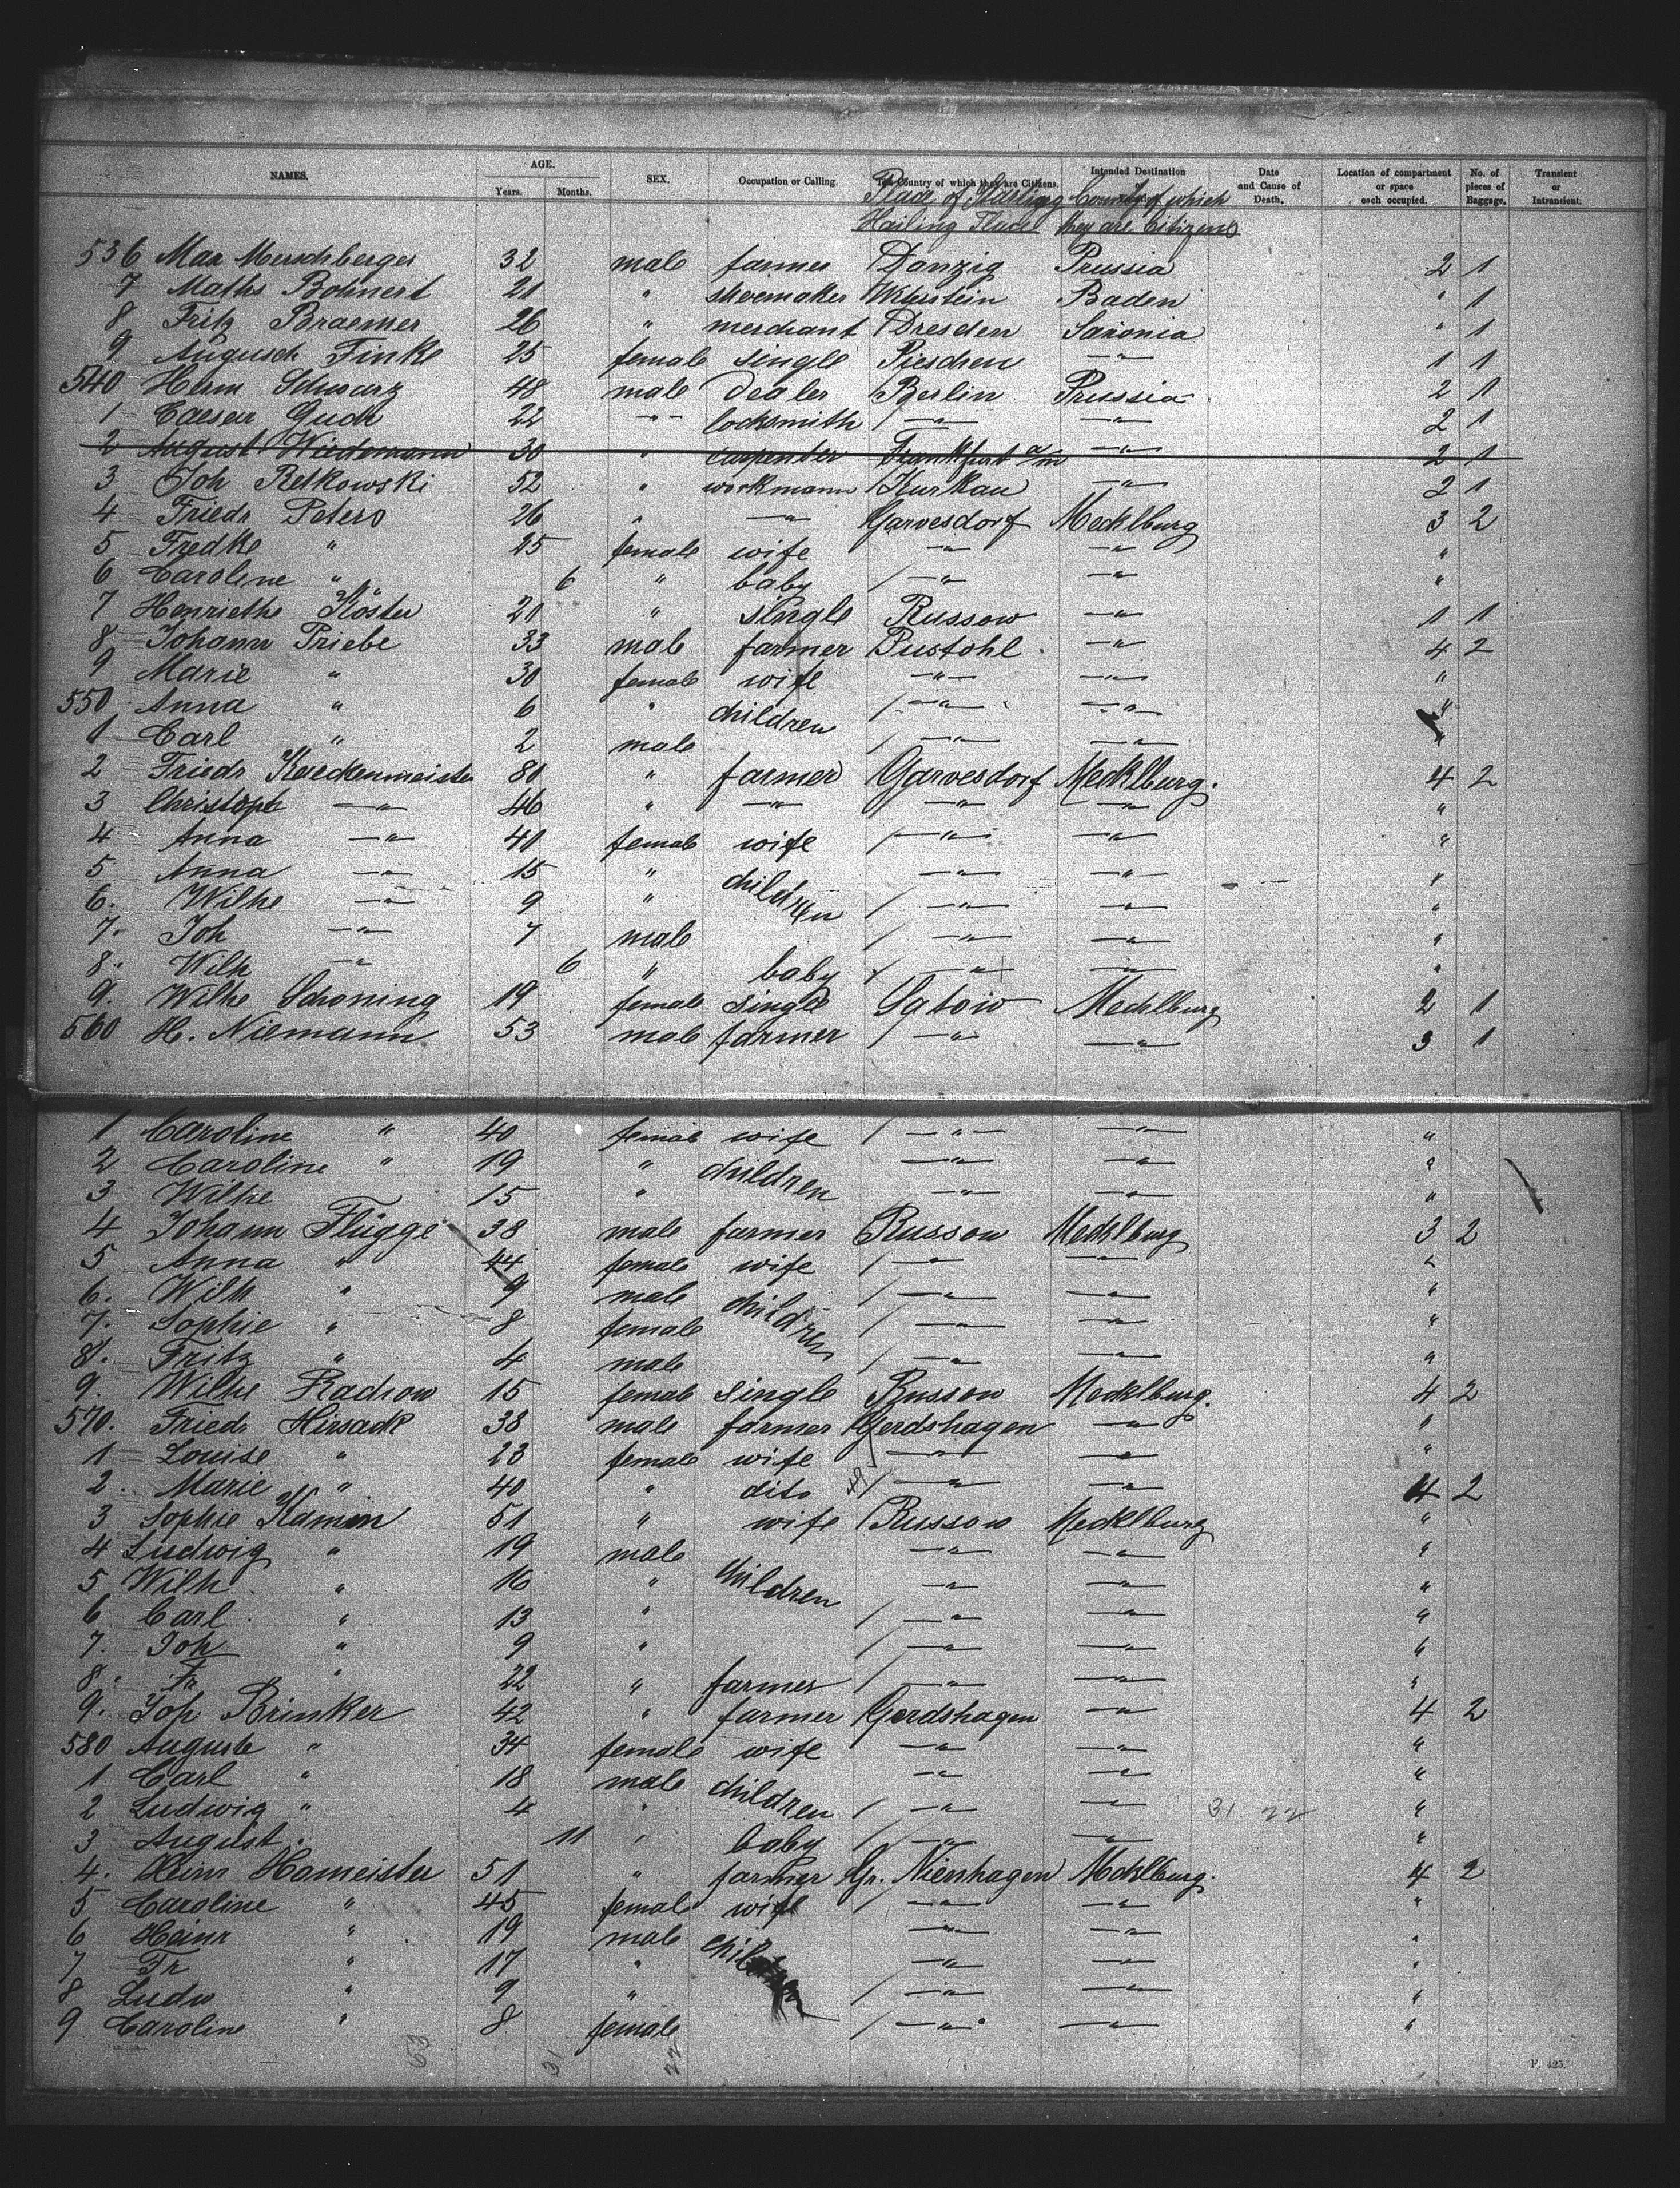 NAMES. AGE. Years. Months. SEX. Occupation or Calling. The Country of which they are Citizens. Intended Destination Date and Cause of Death. Location of compartment or space each occupied. No. of pieces of Baggage. Transient or Intransient.
Place of Starting Country of which
Hailing Place they are Citizens
536 Max Merschberger 32 male farmer Danzig Prussia 2 1
7 Maths Bohnert 21 " shoemaker Baden " 1
8 Fritz Braemer 26 " merchant Dresden Saxonia " 1
9 Augusch Finke 25 female single Pieschen —"— 1 1
540 Herm Schwarz 48 male Dealer Berlin Prussia 2 1
1 Caesar Gude 22 —"— locksmith —"— —"— 2 1
2 August Wiedemann 30 " carpenter Frankfurt a/m —"— 2 1
3 Joh Retkowski 52 " workmann Kurkau —"— 2 1
4 Friedr Peters 26 " —"— Garvesdorf Mecklburg 3 2
5 Fredke " 25 female wife —"— —"— "
6 Caroline " 6 " baby —"— —"— "
7 Henriethe Köster 20 " single Russow —"— 1 1
8 Johann Priebe 33 male farmer Pustohl —"— 4 2
9 Marie " 30 female wife —"— —"— "
550 Anna " 6 " children —"— —"— "
1 Carl " 2 male —"— —"— "
2 Friedr Kueckenmeister 80 " farmer Garvesdorf Mecklburg. 4 2
3 Christoph —"— 46 " —"— —"— —"— "
4 Anna —"— 40 female wife —"— —"— "
5 Anna —"— 15 " children —"— —"— "
6. Wilhe —"— 9 " —"— —"— "
7. Joh —"— 7 male —"— —"— "
8. Wilh —"— 6 " baby —"— —"— "
9. Wilhe Schoning 19 female single Satow Mecklburg 2 1
560 H. Niemann 53 male farmer —"— —"— 3 1
1 Caroline " 40 female wife —"— —"— "
2 Caroline " 19 " children —"— —"— "
3 Wilhe 15 " —"— —"— "
4 Johann Flügge 38 male farmer Russow Mecklburg 3 2
5 Anna " 44 female wife —"— —"— "
6. Wilh " 9 male children —"— —"— "
7. Sophie " 8 female —"— —"— "
8. Fritz " 4 male —"— —"— "
9. Wilhe Radrow 15 female single Russow Mecklburg. 4 2
570. Friedr Hersack 38 male farmer Gerdshagen —"— "
1 Louise " 23 female wife —"— —"— "
2. Marie " 40 " dito —"— —"— 4 2
3 Sophie Kamin 51 " wife Russow Mecklburg "
4 Ludwig " 19 male —"— —"— "
5 Wilh " 16 " children —"— —"— "
6 Carl " 13 " —"— —"— "
7. Joh " 9 " —"— —"— "
8. Fr " 22 " farmer —"— —"— "
9. Joh Brinker 42 " farmer Gerdshagen —"— 4 2
580 Auguste " 34 female wife —"— —"— "
1 Carl " 18 male children —"— —"— "
2 Ludwig " 4 " —"— —"— 31 22 "
3 August. 11 " baby —"— —"— "
4. Heinr Hameister 51 " farmer Gr. Nienhagen Mecklburg. 4 2
5 Caroline " 45 female wife —"— —"— "
6 Heinr " 19 male children —"— —"— "
7 Fr " 17 " —"— —"— "
8 Ludw " 9 " —"— —"— "
9 Caroline " 8 female —"— —"— "
53 31 22
F. 425.